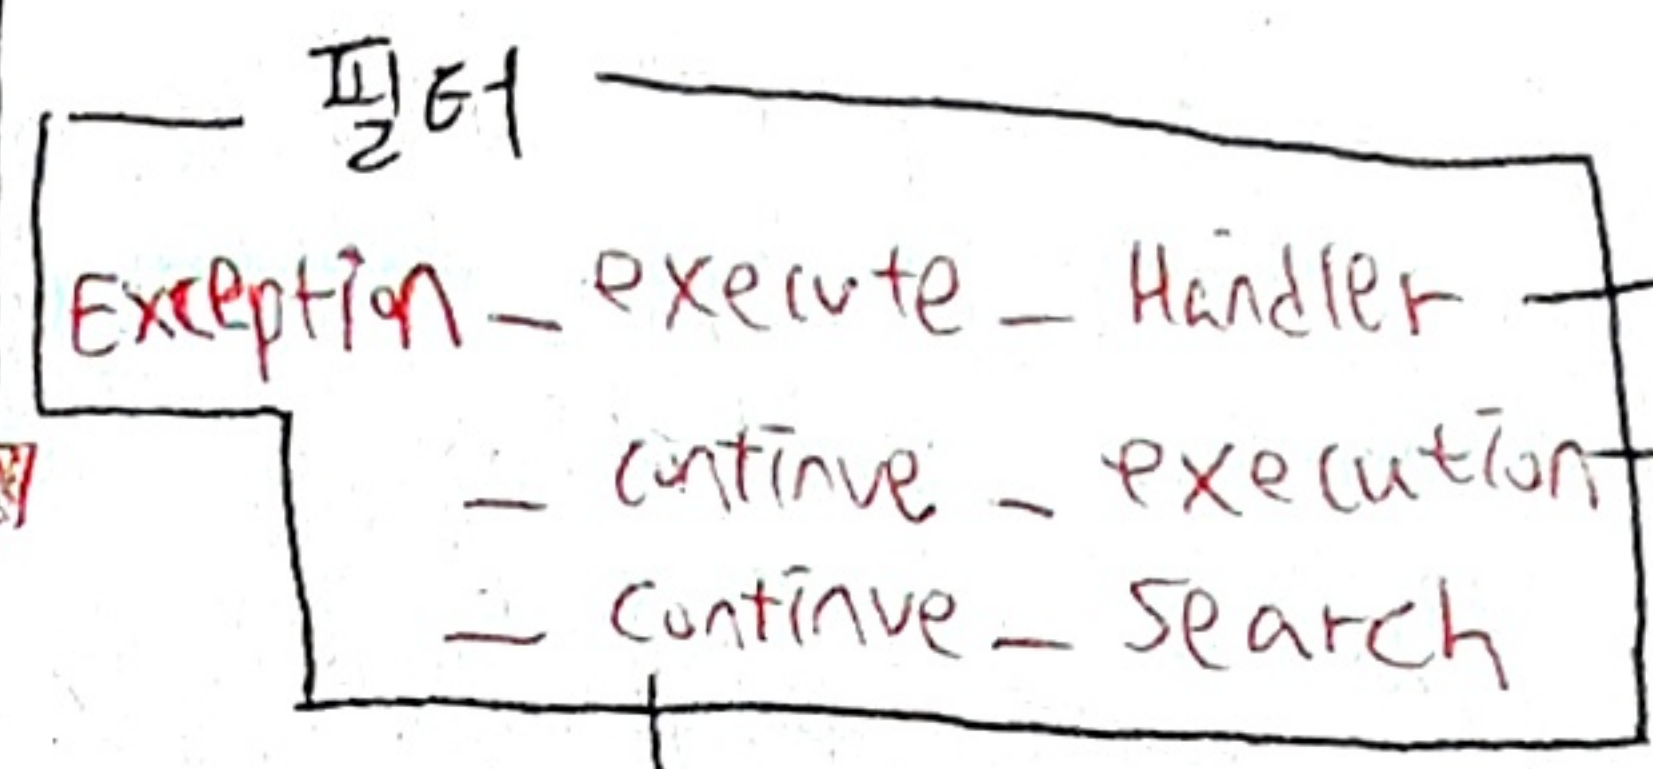 필터
Exception_execute_Handler
_continue_execution
_continue_search